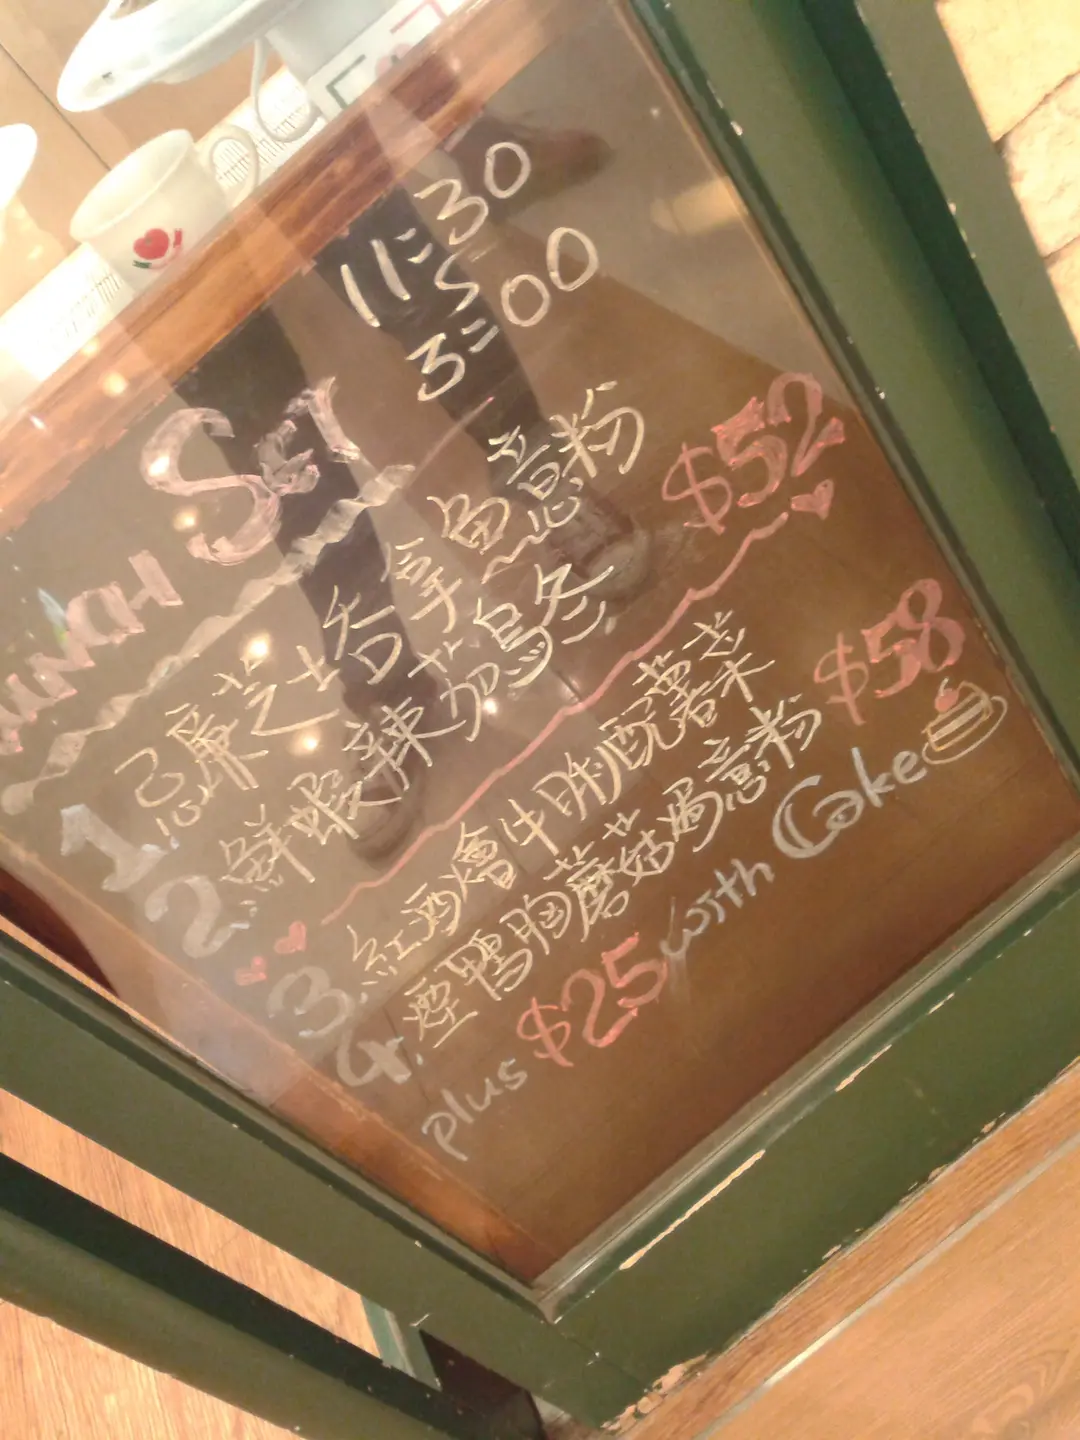 LUNCH Set
11:30
S
3:00
1. 忌廉芝士吞拿魚意粉
2. 鮮蝦辣茄烏冬
$52
3. 紅酒燴牛脷配薯菜
4. 煙鴨胸蘑菇焗意粉
$58
plus $25 with Cake